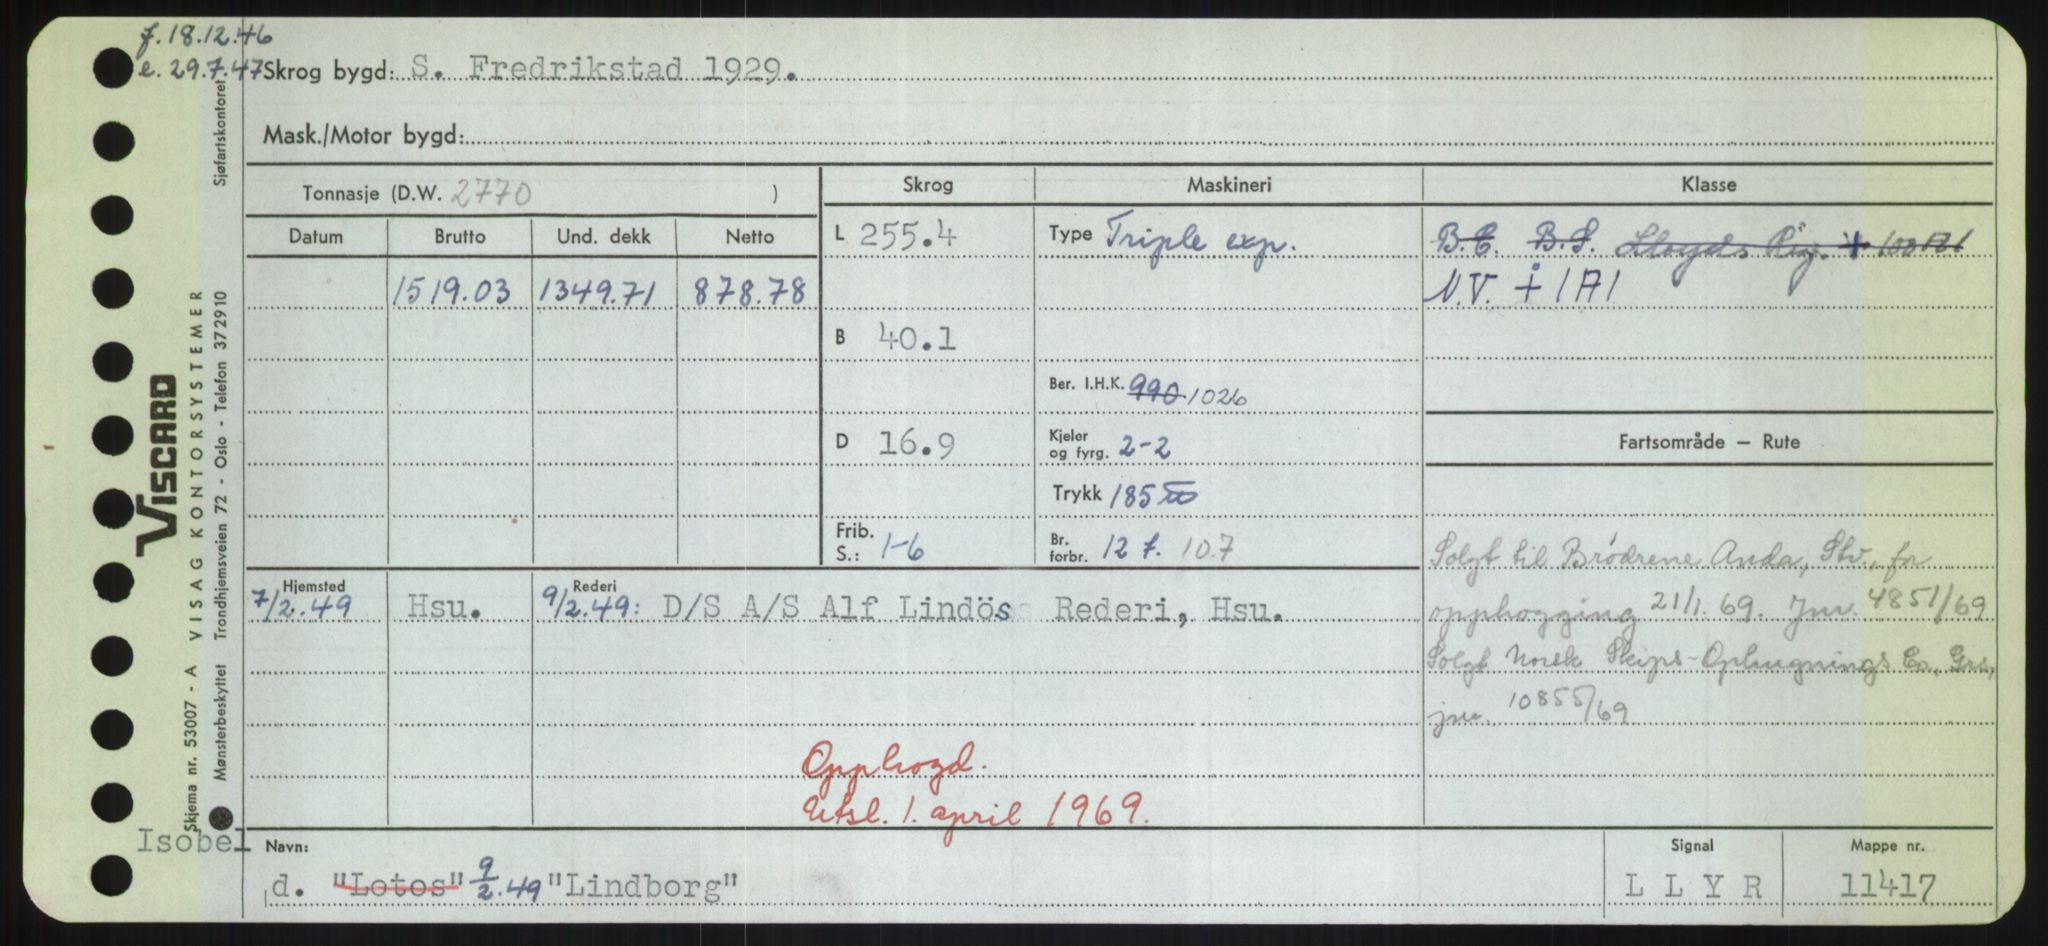 f. 18.12.46
e. 29.7.47 Skrog bygd: S. Fredrikstad 1929.
Mask./Motor bygd:
Tonnasje (D.W. 2770 )
Datum Brutto Und. dekk Netto
1519.03 1349.71 878.78
Skrog
L 255.4
B 40.1
D 16.9
Frib. S.: 1-6
Maskineri
Type Triple exp.
Ber. I.H.K. 990 1026
Kjeler og fyrg. 2-2
Trykk 185
Br. forbr. 12 f. 10.7
Klasse
B.C. B.S. Lloyds Rig. + 100 A1
N.V. + 1A1
Fartsområde — Rute
Solgt til Brødrene Anda, Stv., for
opphogging 21/1.69. Jnr. 4851/69
Solgt Norsk Skips-Ophugnings Co., Grs,
jnr. 10855/69
Hjemsted Rederi
7/2.49 Hsu. 9/2.49: D/S A/S Alf Lindös Rederi, Hsu.
Opphogd.
Utsl. 1. april 1969.
Isobel
Navn: d. "Lotos" 9/2.49 "Lindborg"
Signal
L L Y R
Mappe nr.
11417
VISCARD
VISAG KONTORSYSTEMER
Skjema nr. 53007 - A
Mønsterbeskyttet Trondhjemsveien 72 - Oslo - Telefon 372910
Sjøfartskontoret